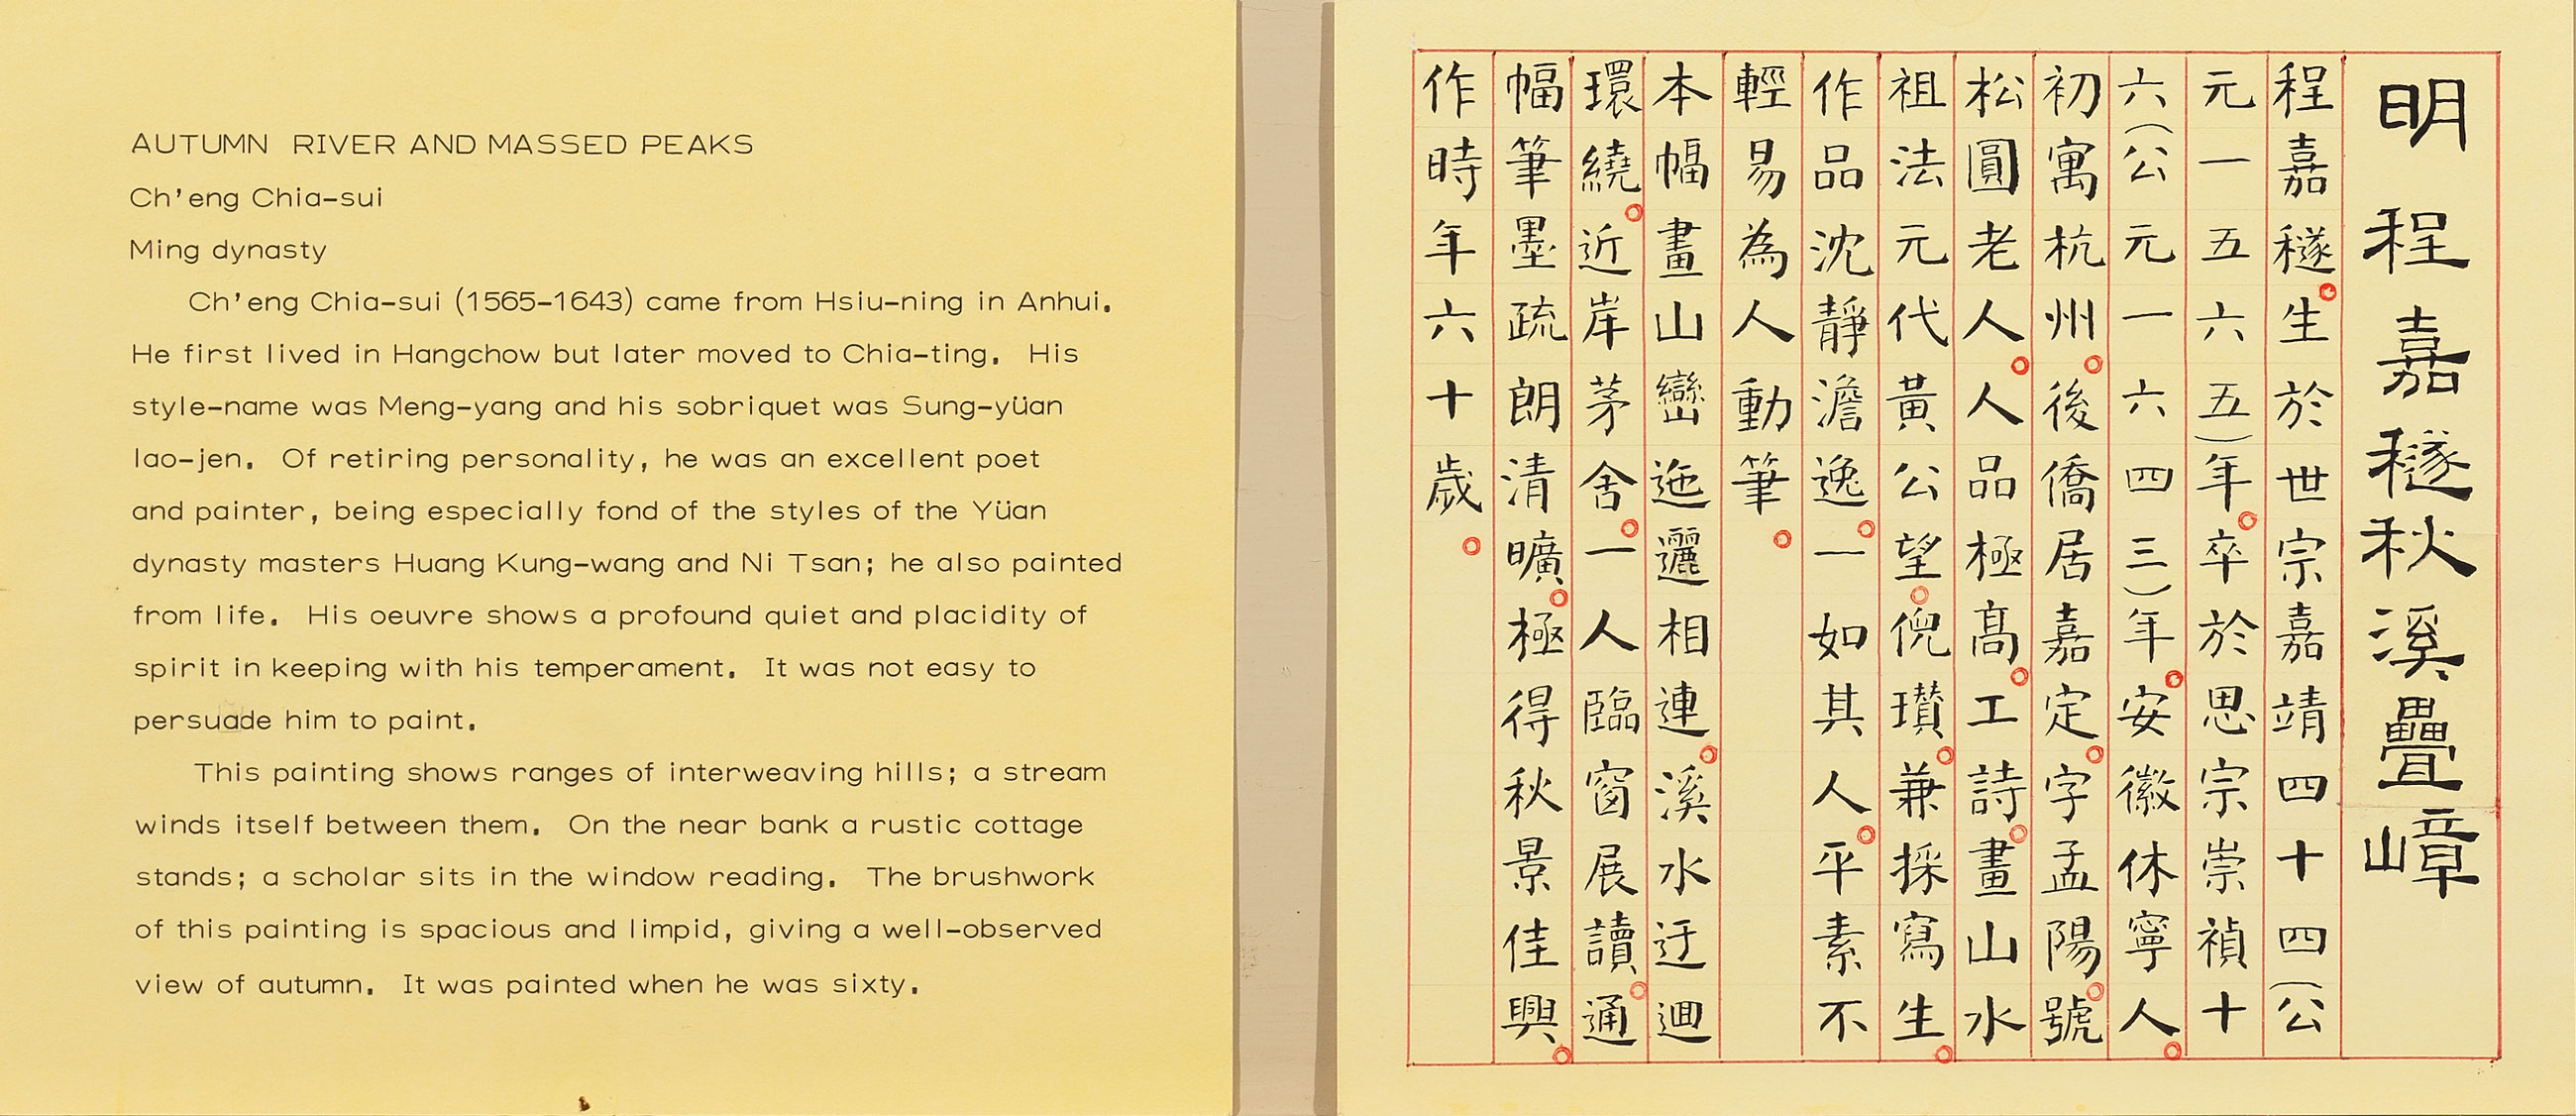 AUTUMN RIVER AND MASSED PEAKS
Ch'eng Chia-sui
Ming dynasty
Ch'eng Chia-sui (1565-1643) came from Hsiu-ning in Anhui.
He first lived in Hangchow but later moved to Chia-ting. His
style-name was Meng-yang and his sobriquet was Sung-yüan
lao-jen. Of retiring personality, he was an excellent poet
and painter, being especially fond of the styles of the Yüan
dynasty masters Huang Kung-wang and Ni Tsan; he also painted
from life. His oeuvre shows a profound quiet and placidity of
spirit in keeping with his temperament. It was not easy to
persuade him to paint.
This painting shows ranges of interweaving hills; a stream
winds itself between them. On the near bank a rustic cottage
stands; a scholar sits in the window reading. The brushwork
of this painting is spacious and limpid, giving a well-observed
view of autumn. It was painted when he was sixty.
明 程嘉燧秋溪疊嶂
程嘉燧。生於世宗嘉靖四十四(公
元一五六五)年。卒於思宗崇禎十
六(公元一六四三)年。安徽休寧人。
初寓杭州。後僑居嘉定。字孟陽。號
松圓老人。人品極高。工詩。畫山水
祖法元代黃公望。倪瓚。兼採寫生。
作品沈靜澹逸。一如其人。平素不
輕易為人動筆。
本幅畫山巒迤邐相連。溪水迂迴
環繞。近岸茅舍。一人臨窗展讀。通
幅筆墨疏朗清曠。極得秋景佳興。
作時年六十歲。